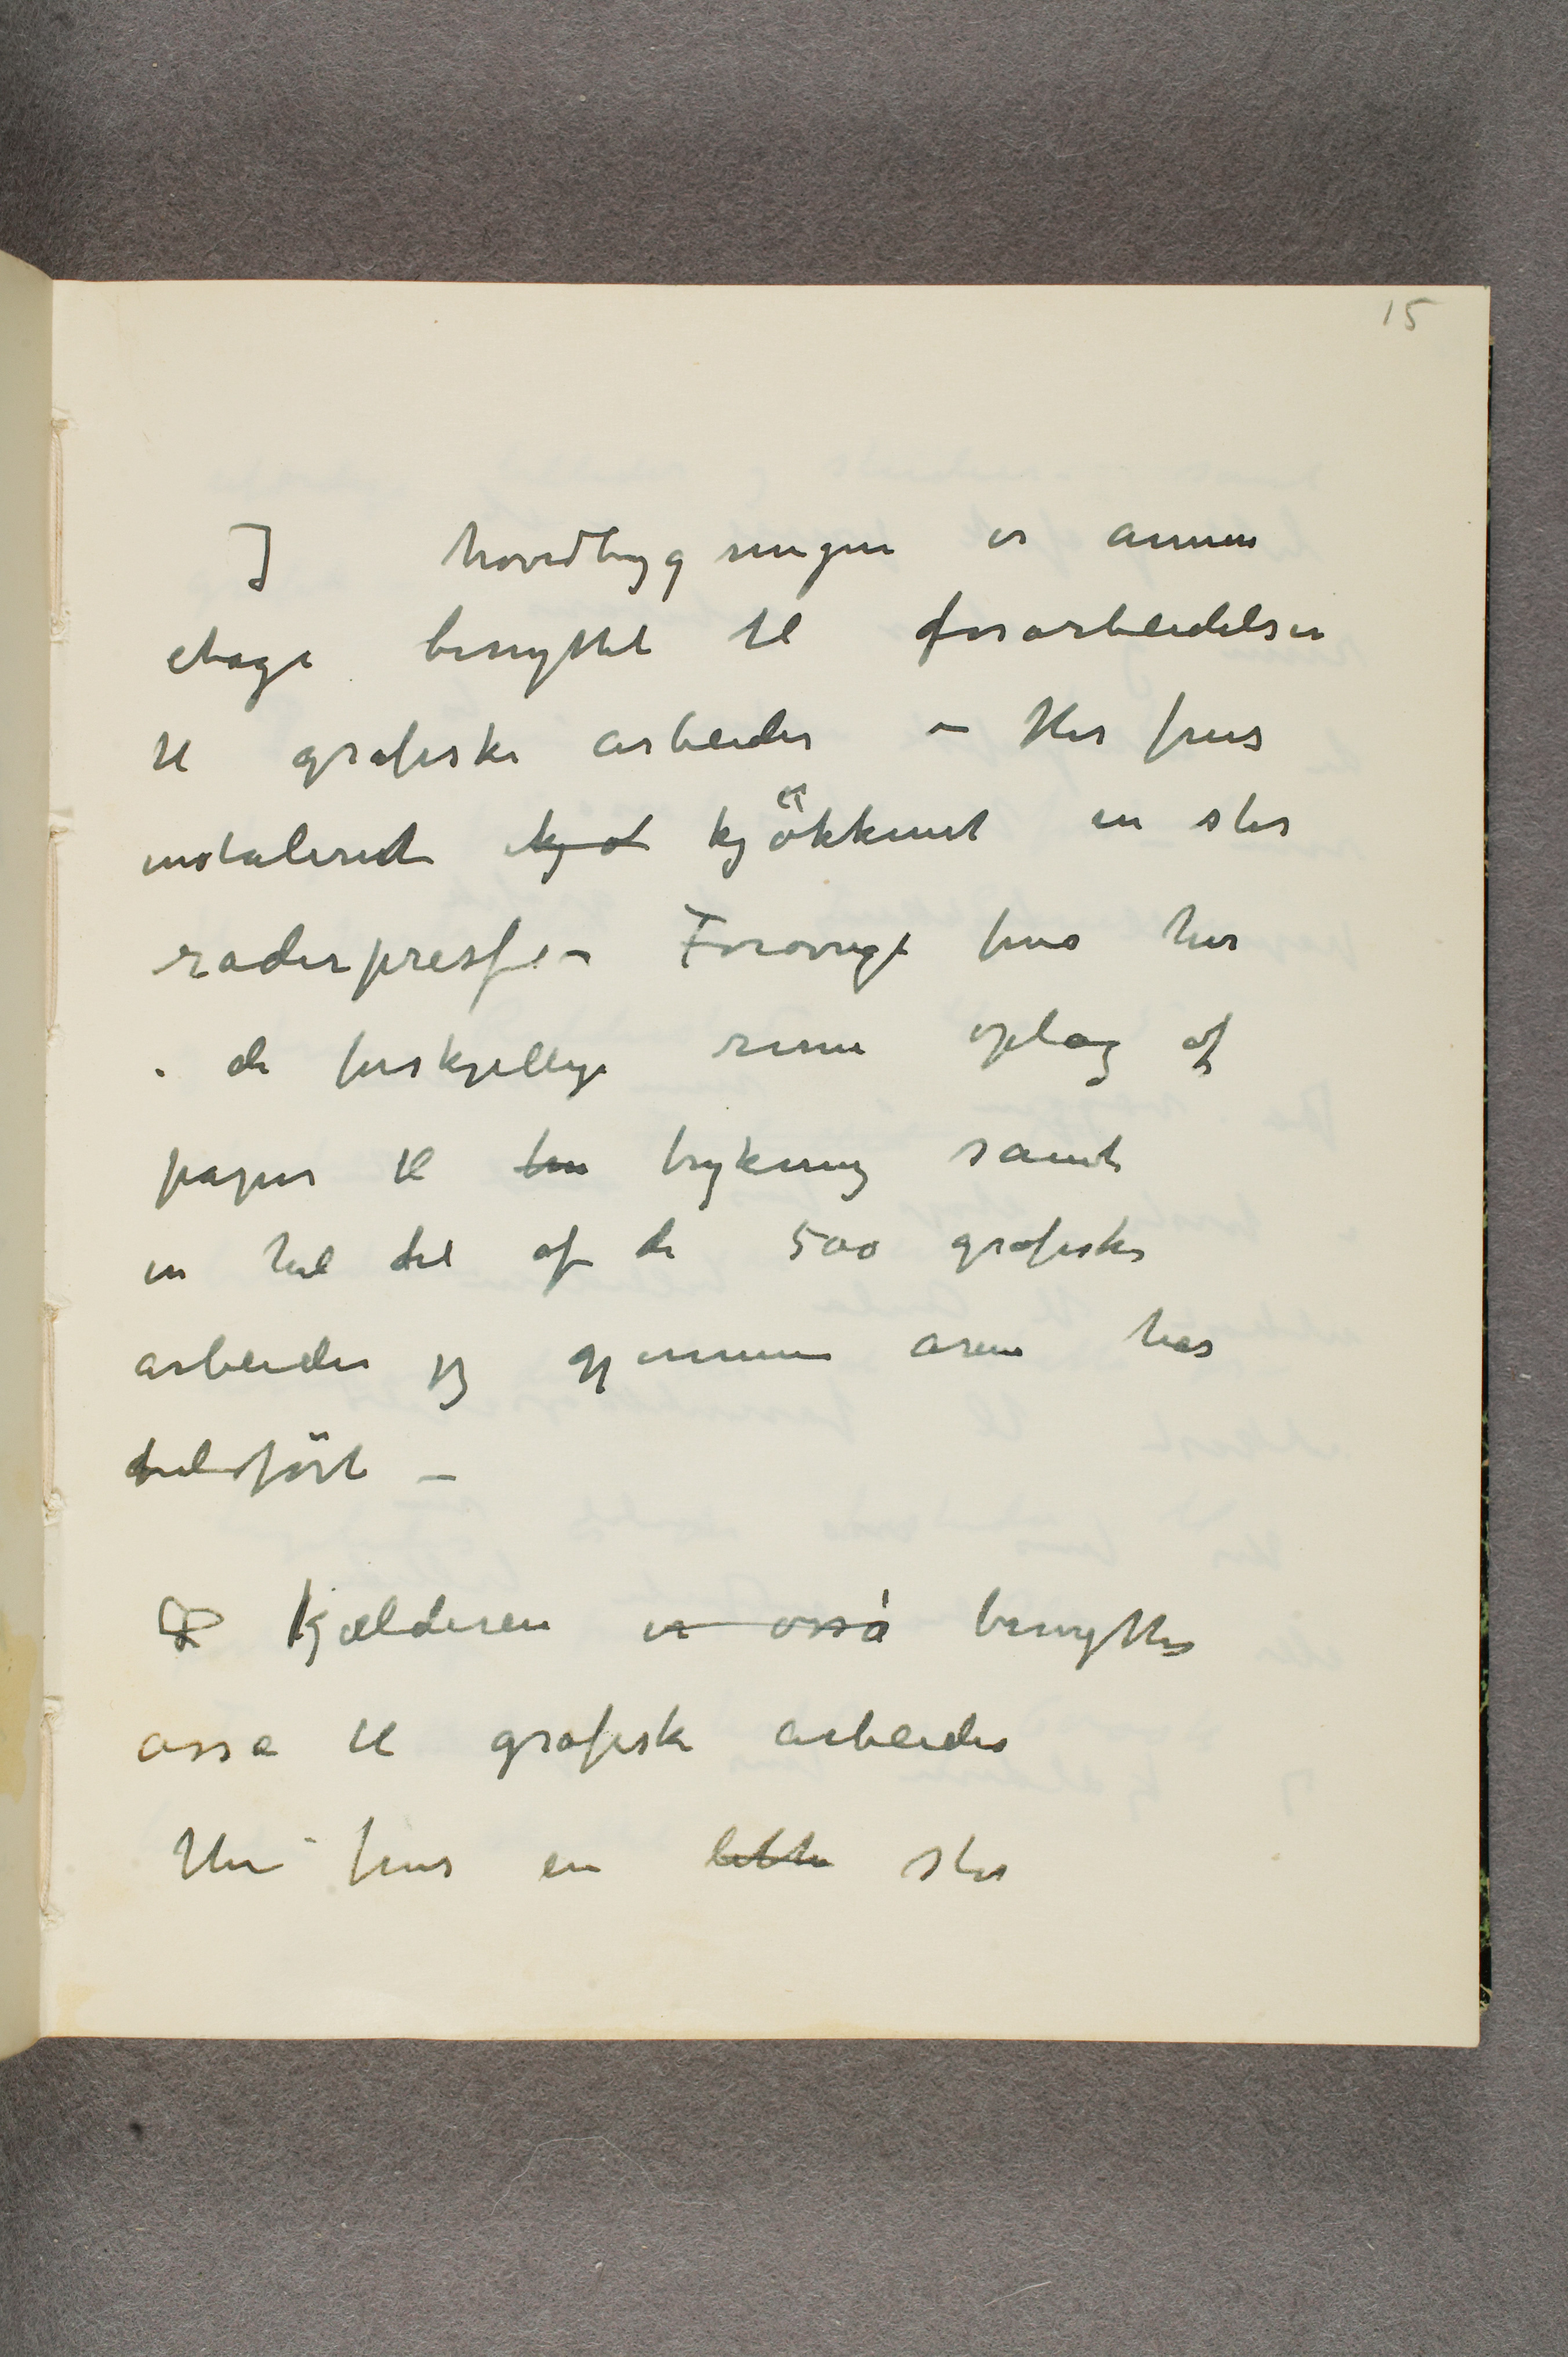 15
I hovedbygningen er annen
etage benyttet til forarbeidelsen
til grafiske arbeider – Her fins
instaleret kjø kjökkenet en stor
raderpresse – Forøvrigt fins her
i de forskjellige rum oplag af
papir til brykning samt
en hel del af de 500 grafiske
arbeider jeg gjennem aren har
fuldført –
I kjælderen er også benyttes
osså til grafiske arbeider
Her fins en liten stor